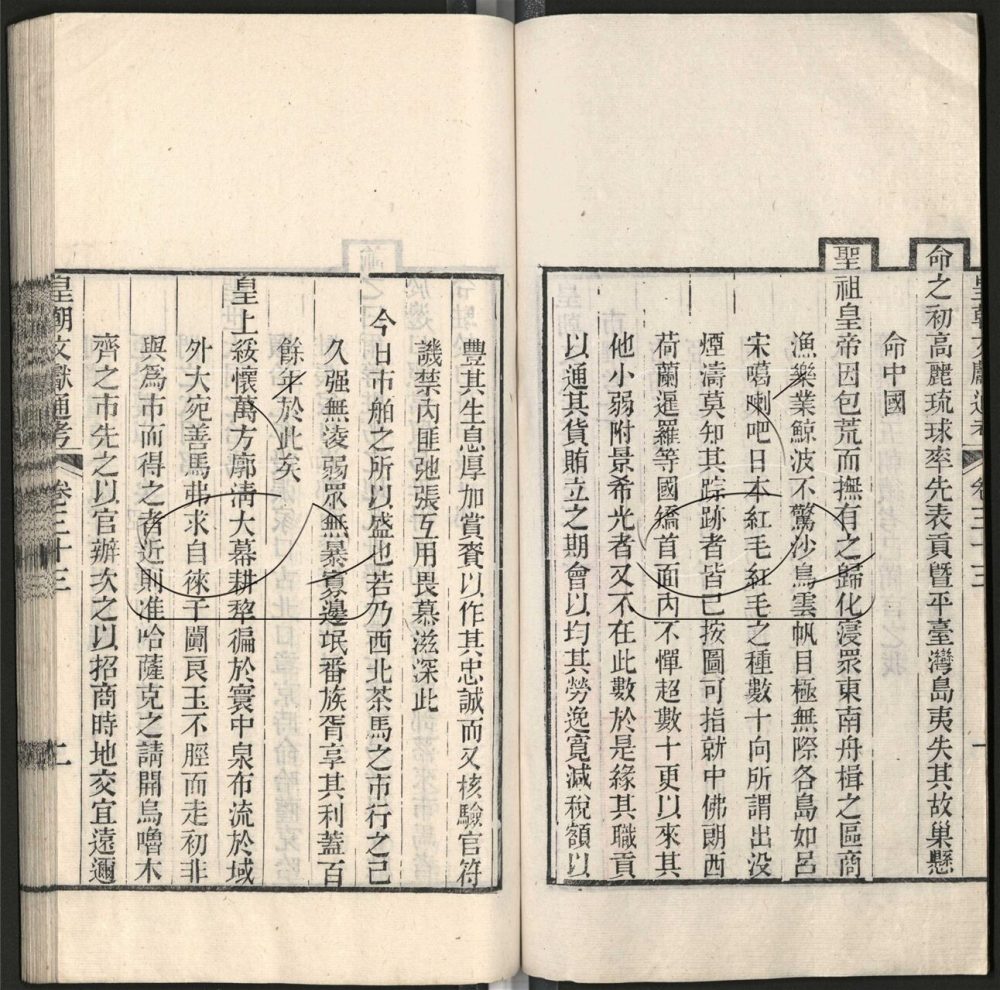 皇朝文獻通考 卷三十三
命之初高麗琉球率先表貢曁平臺灣島夷失其故巢懸
命中國
聖祖皇帝因包荒而撫有之歸化寖眾東南舟楫之區商
漁樂業鯨波不驚沙鳥雲帆目極無際各島如呂
宋噶喇吧日本紅毛紅毛之種數十向所謂出没
煙濤莫知其踪跡者皆已按圖可指就中佛朗西
荷蘭暹羅等國繑首面內不憚超數十更以來其
他小弱附景希光者又不在此數於是緣其職貢
以通其貨賄立之期會以均其勞逸寬減稅額以
豐其生息厚加賞賚以作其忠誠而又核驗官符
譏禁內匪弛張互用畏慕滋深此
今日市舶之所以盛也若乃西北茶馬之市行之已
久强無凌弱眾無暴寡邊氓番族胥享其利蓋百
餘年於此矣
皇上綏懷萬方廓清大幕耕犂徧於寰中泉布流於域
外大宛善馬弗求自徠于闐良玉不脛而走初非
與爲市而得之者近則准哈薩克之請開烏嚕木
齊之市先之以官辦次之以招商時地交宜遠邇
皇朝文獻通考 卷三十三 二